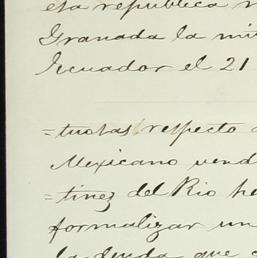 esta republica
Granada la
Ecuador el 21
=tuotas respecto
Mexicano
=tinez del Rio
formalizar un
la deuda que